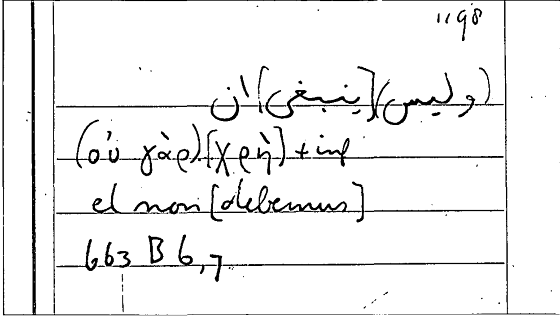 1198
(وليس) [ينبغى] ان
(οὐ γὰρ) [χρὴ] + inf
et non [debemus]
663 B 6,7